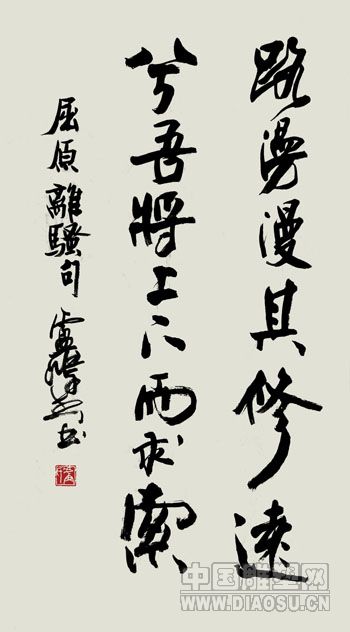 路漫漫其修遠
兮吾將上下而求索
屈原離騷句
中国雕塑网
WWW.DIAOSU.CN